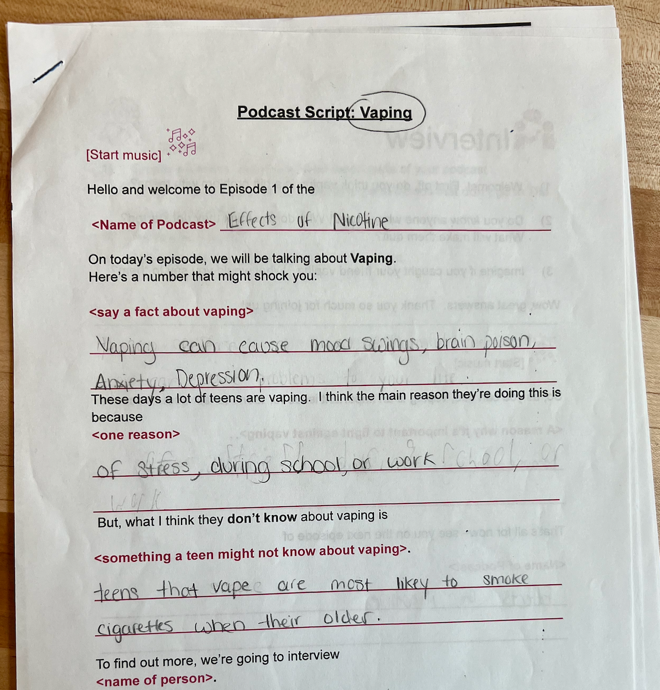 Podcast Script: Vaping
[Start music]
Hello and welcome to Episode 1 of the
<Name of Podcast> Effects of Nicotine
On today's episode, we will be talking about Vaping.
Here's a number that might shock you:
<say a fact about vaping>
Vaping can cause mood swings, brain poison,
Anxiety, Depression.
These days a lot of teens are vaping. I think the main reason they're doing this is
because
<one reason>
of stress, during school, or work school, or
work
But, what I think they don't know about vaping is
<something a teen might not know about vaping>.
teens that vape are most likely to smoke
cigarettes when their older.
To find out more, we're going to interview
<name of person>.